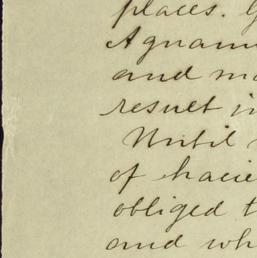 places.
and
result in
Until
of hacie
obliged t
and wh